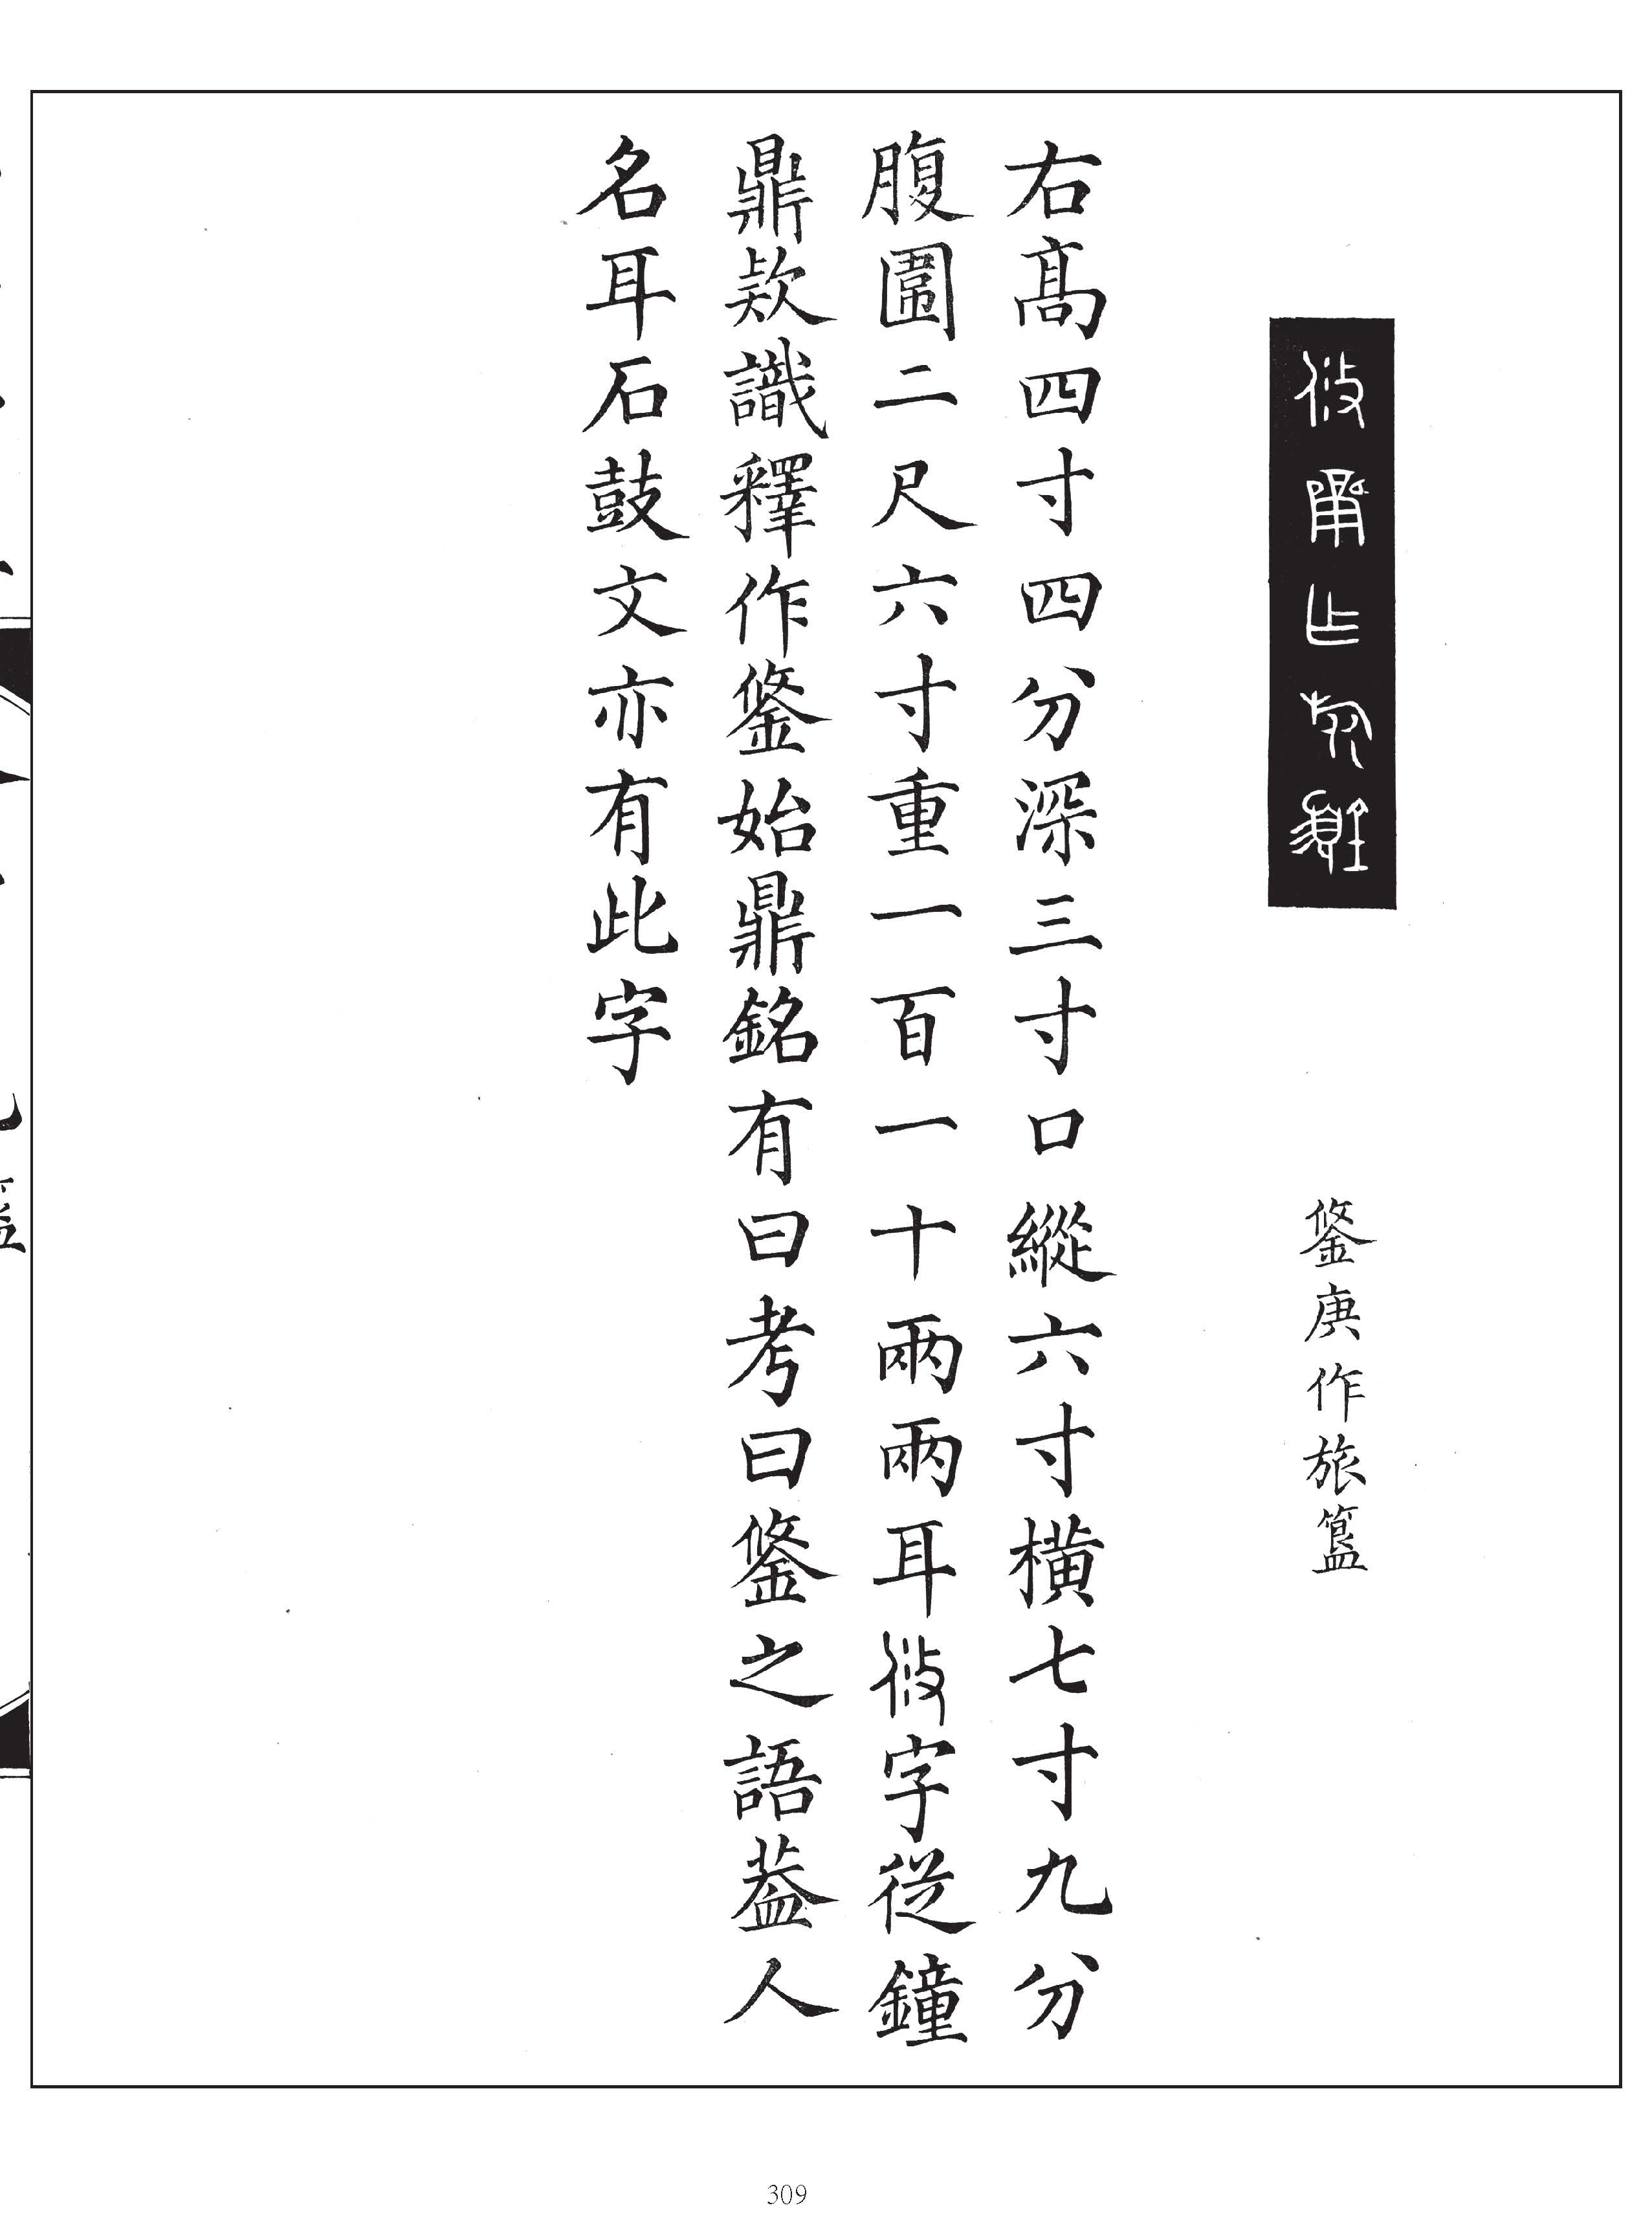 鋚庚作旅簋
右髙四寸四分深三寸口縱六寸橫七寸九分
腹圍二尺六寸重一百一十兩兩耳字從鐘
鼎欵識釋作鋚始鼎銘有曰考曰鋚之語葢人
名耳石鼓文亦有此字
309